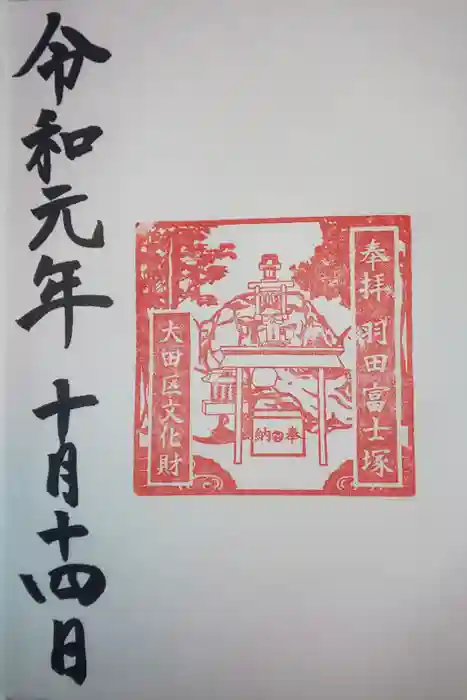 奉拝 羽田富士塚
奉納
大田区文化財
令和元年 十月十四日